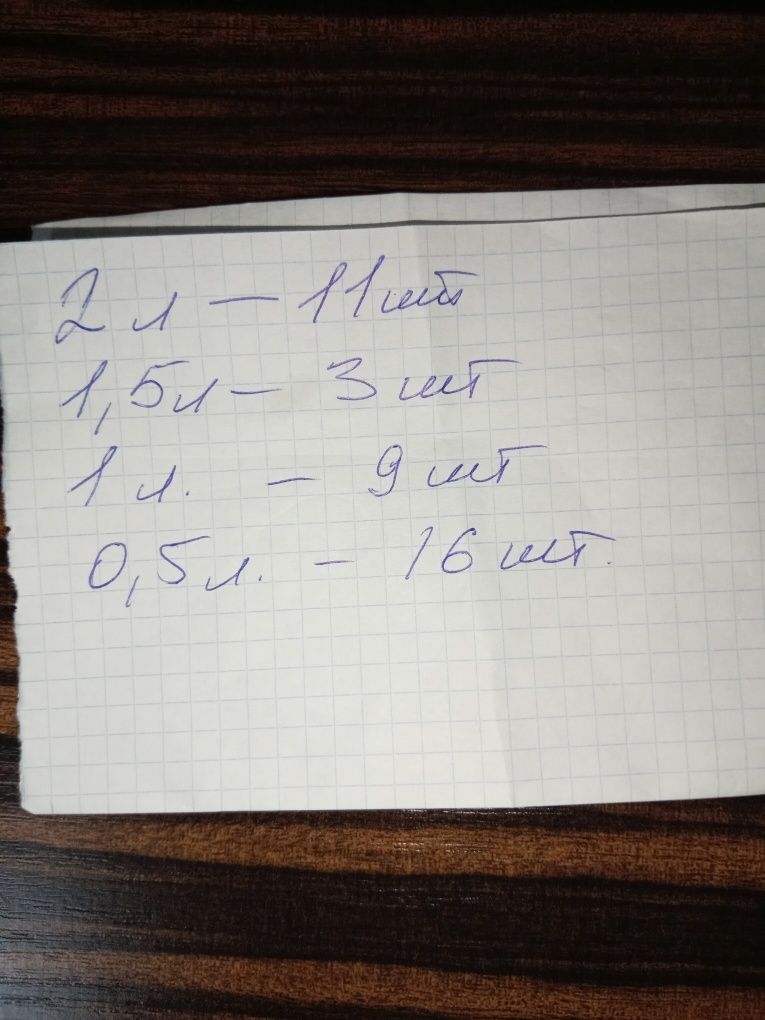 2 л — 11 шт
1,5 л — 3 шт
1 л. — 9 шт
0,5 л. — 16 шт.